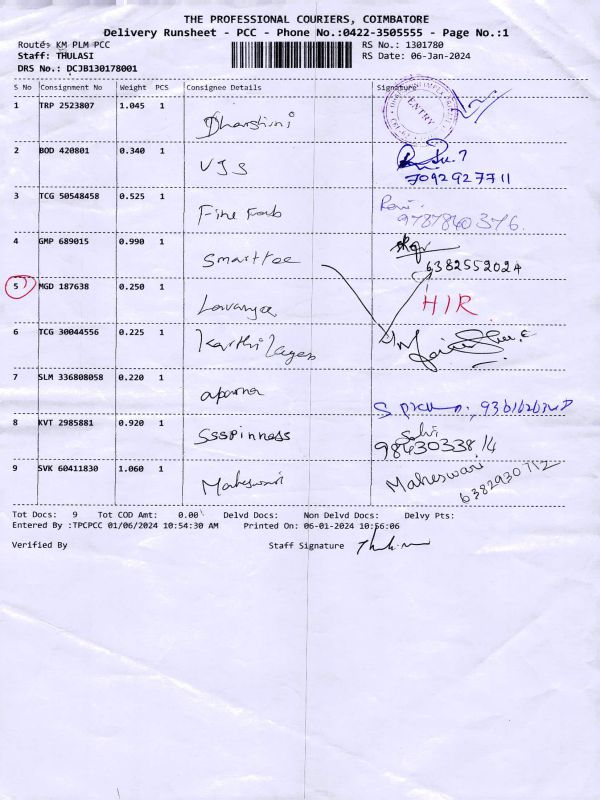 THE PROFESSIONAL COURIERS, COIMBATORE
Delivery Runsheet - PCC - Phone No.:0422-3505555 - Page No.:1
Route: KM PLM PCC
RS No.: 1301780
Staff: THULASI
RS Date: 06-Jan-2024
DRS No.: DCJB130178001
S No Consignment No Weight PCS Consignee Details Signature
1 TRP 2523807 1.045 1 Dharshini
ENTRY
2 BOD 420801 0.340 1 VJS
7092927711
3 TCG 50548458 0.525 1 Fine Fab
9787840376.
4 GMP 689015 0.990 1 Smartree
6382552024
5 MGD 187638 0.250 1 Lavanya HIR
6 TCG 30044556 0.225 1
7 SLM 336808058 0.220 1 aparna
8 KVT 2985881 0.920 1 SSSPinness
9843033814
9 SVK 60411830 1.060 1 Maheswari Maheswari
6382930712
Tot Docs: 9 Tot COD Amt: 0.00 Delvd Docs: Non Delvd Docs: Delvy Pts:
Entered By :TPCPCC 01/06/2024 10:54:30 AM Printed On: 06-01-2024 10:56:06
Verified By Staff Signature